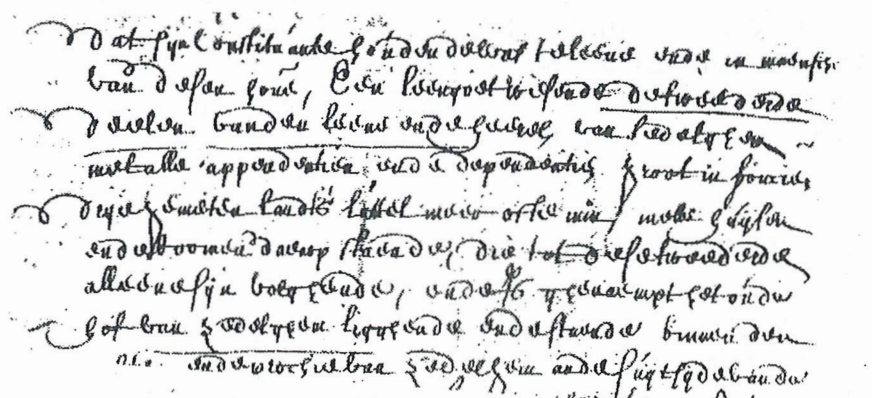 dat sijn Constituante houdende was te leene ende in manschepe
van desen hove, Een leengoet wesende de twee derde
deelen vanden leene ende heerel, van sedelghem
met alle appendentien ende dependentien groot in foncier
drije gemeten landts luttel meer ofte min, metten huijsen
ende boomen daerop staende, die tot dese twee derde
alleene sijn volghende, ende is ghenaempt het oude
hof van zedelghem ligghende ende streckende binnen der
ende prochie van zedelghem ande suijtsijde vande